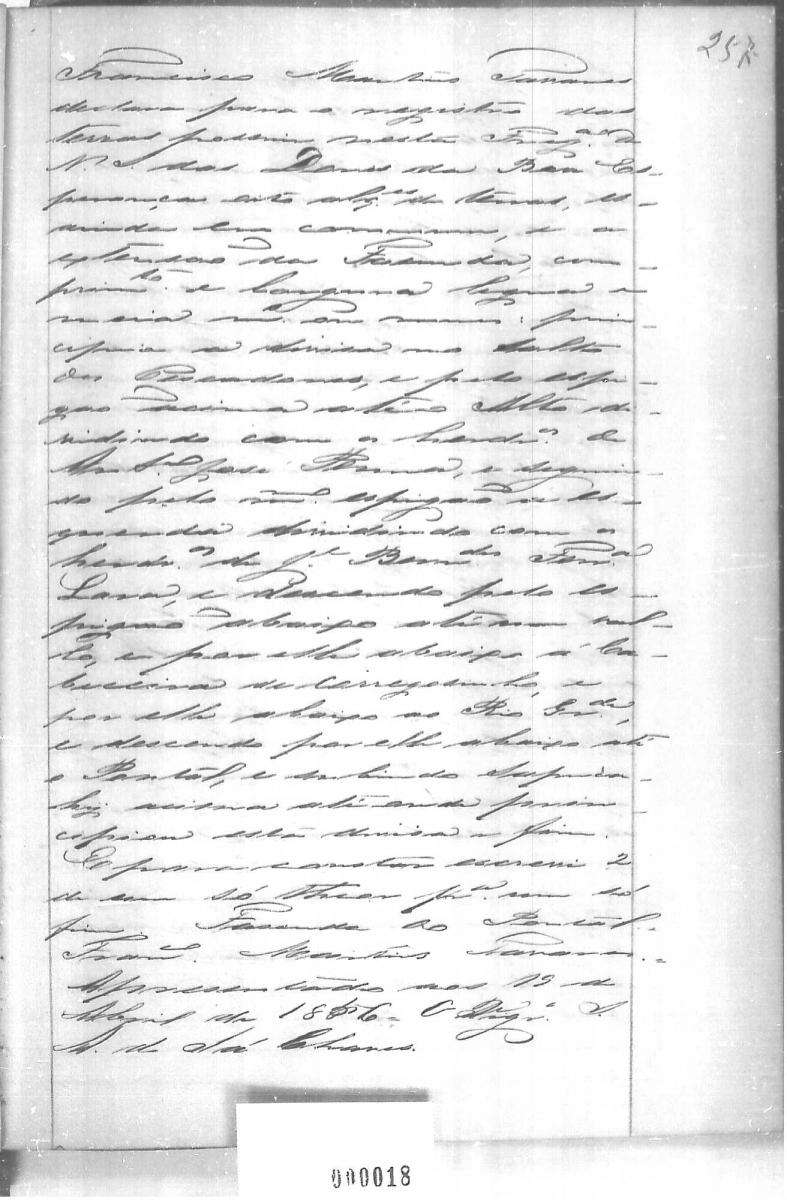 257
Francisco Martins Tavares
declara para o registro das
terras possuir nesta Freg.ª de
N. S. das Dores da Boa Es-
perança oito alq.es de terras, is-
tando em commum, e a
extensão da Fazenda, com-
prim.to e largura legoa e
meia m.ª ou menos: prin-
cipia a divisa no Salto
dos Pescadores, e pelo espi-
gão acima até o Alto di-
vidindo com os herdr.os de
José Penna, e seguin-
do pelo m.mo espigão a es-
querda dividindo com os
herdr.os de J.e Bern.des Ferr.a
Lara, e descendo pelo es-
pigão abaixo até um val-
lo, e por elle abaixo á ca-
beceira do corregosinho, e
por elle abaixo ao Rio Gr.de,
e descendo por elle abaixo até
o Pontal, e subindo Sapuca-
hy acima até onde prin-
cipiou esta divisa e fim.
E para constar escrevi 2
de um só theor p.ª um só
fim. Fazenda do Pontal.
Fran.co Martins Tavares.
Apresentado aos 19 de
Abril de 1856 = O Vigr.º J.
M. de Sá Chaves.
000018